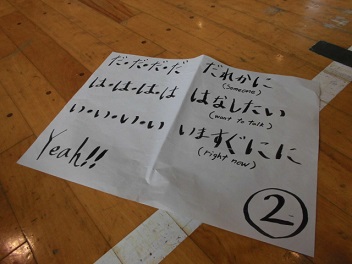 だ・だ・だ・だ
は・は・は・は
い・い・い・い
Yeah!!
だれかに
(Someone)
はなしたい
(want to talk)
いますぐにに
(right now)
2